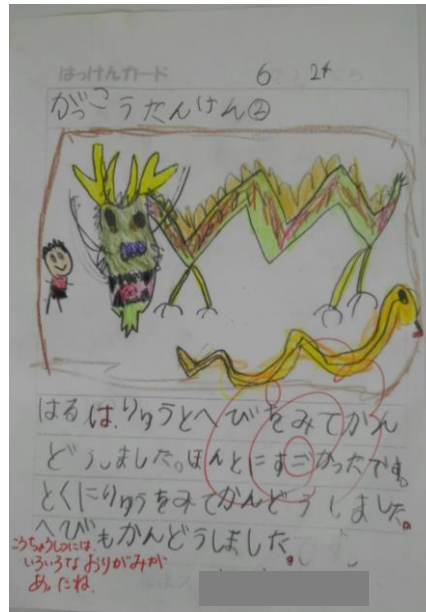 はっけんカード
6 24
がっこうたんけん②
はるは、りゅうとへびをみてかん
どうしました。ほんとにすごかったです。
とくにりゅうをみてかんどうしました。
へびもかんどうしました。
こうちょうしつには
いろいろな おりがみが
あったね。